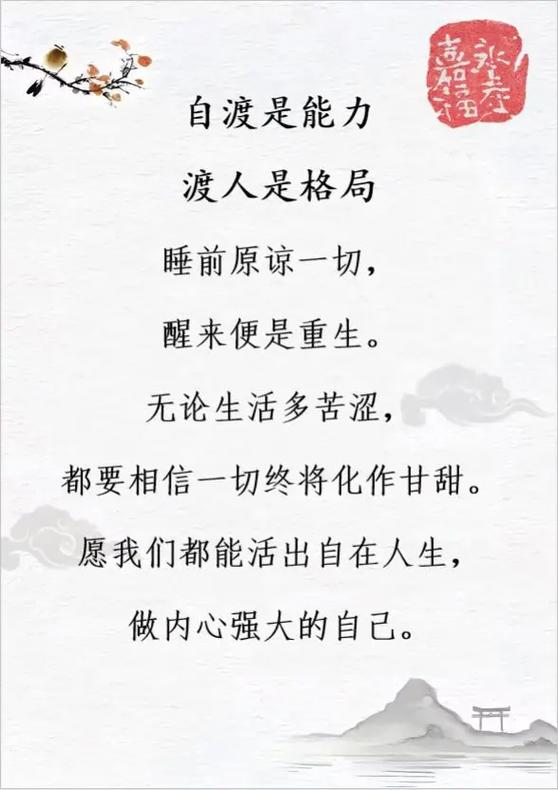 自渡是能力
渡人是格局
睡前原谅一切，
醒来便是重生。
无论生活多苦涩，
都要相信一切终将化作甘甜。
愿我们都能活出自在人生，
做内心强大的自己。